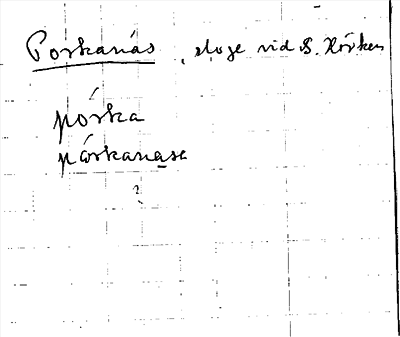 Porkanäs, stuge vid S. Hörken
pórka
pȧrkanäsε
?